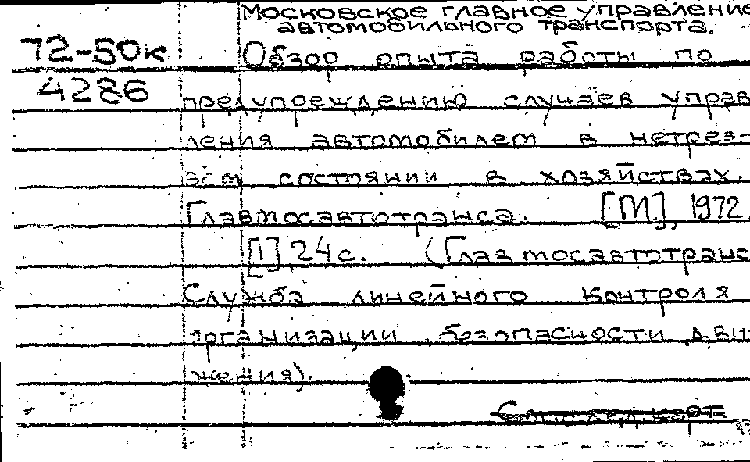 Московское главное управление
автомобильного транспорта.
72-50к Обзор опыта работы по
4286 предупреждению случаев управ
ления автомобилем в нетрез-
вом состоянии в хозяйствах.
Главмосавтотранса. [М], 1972
[1] 24с. (Главмосавтотранс
Служба линейного контроля
организации безопасности дви
жения).